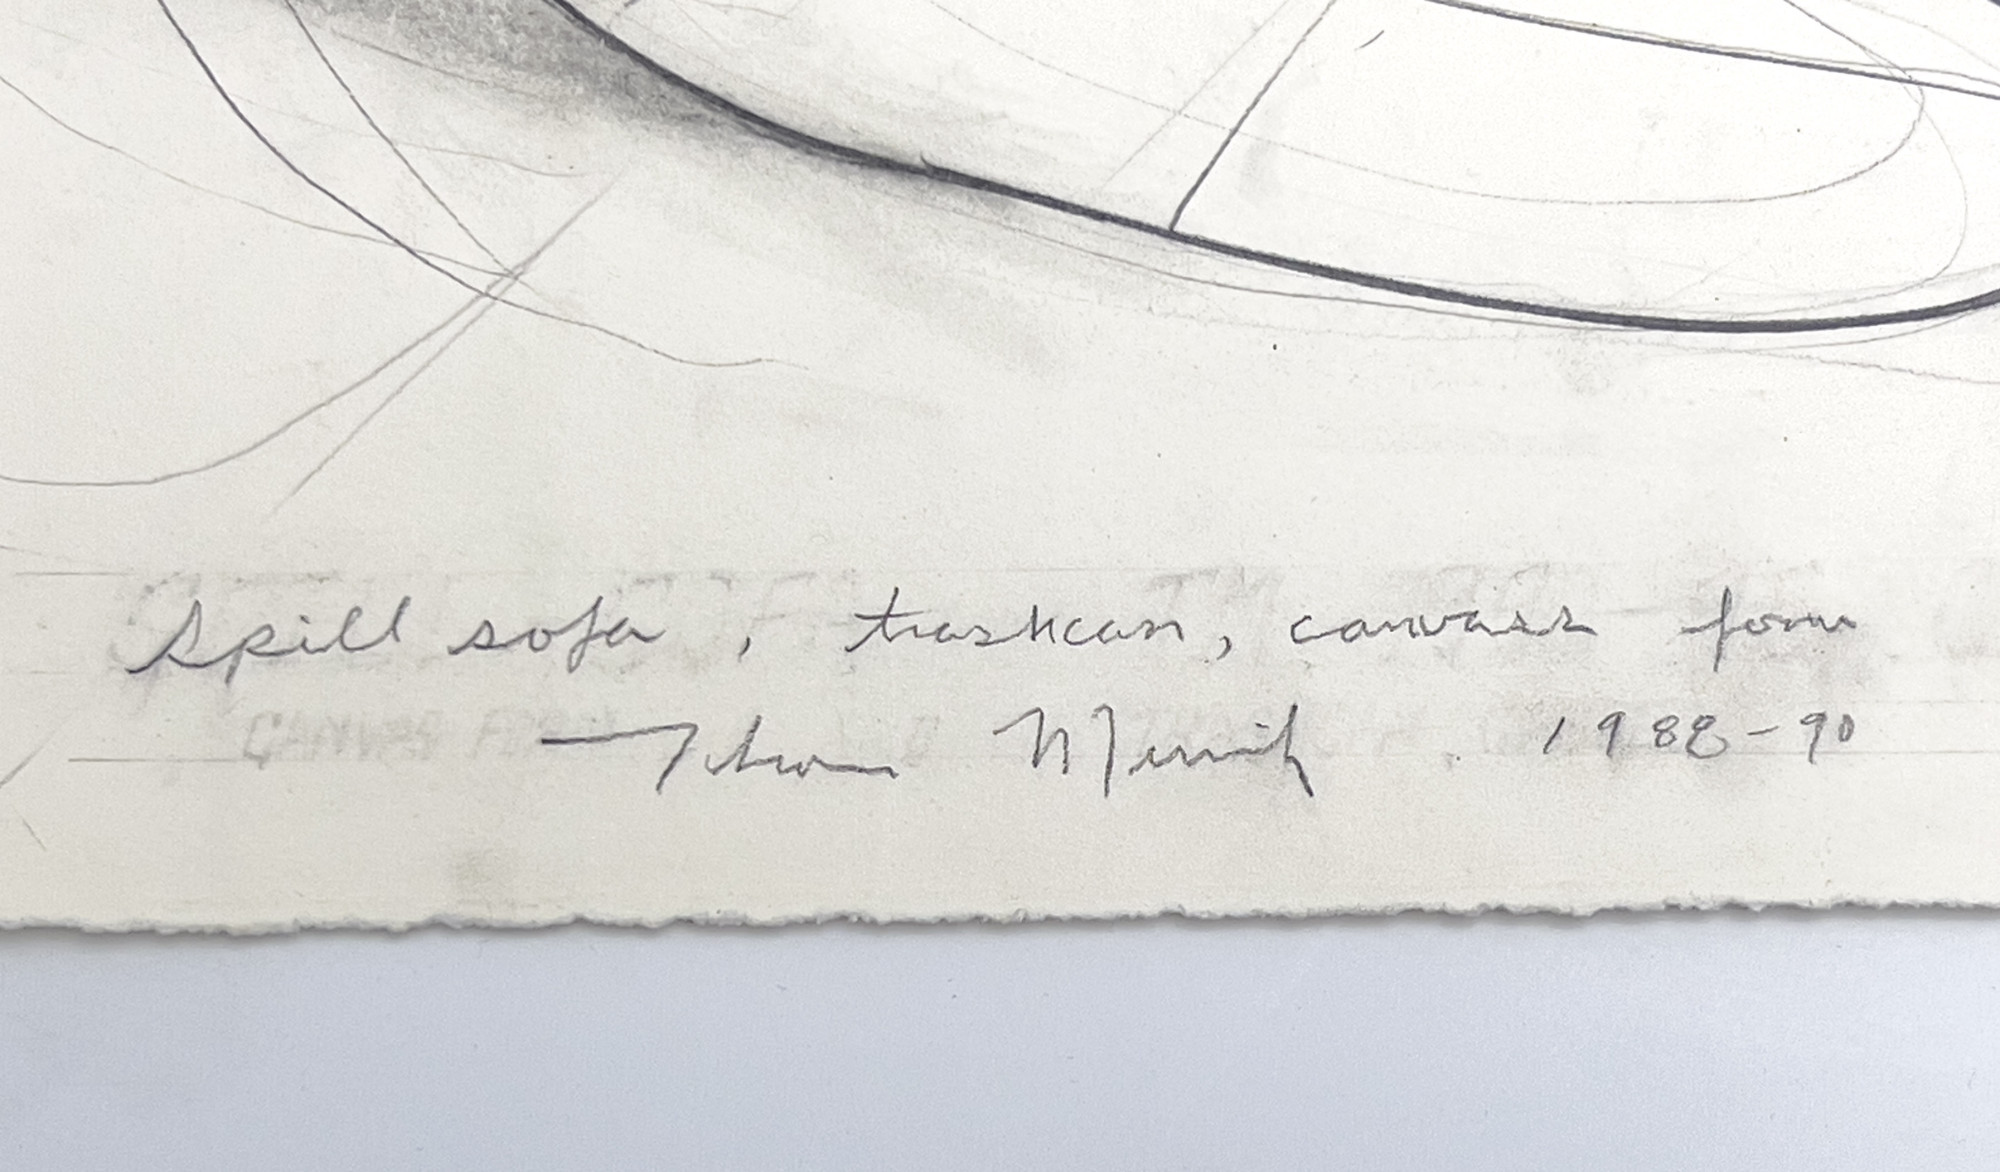 Spill sofa, trashcan, canvass form
Thom Merrick 1988-90
CANVAS FORM